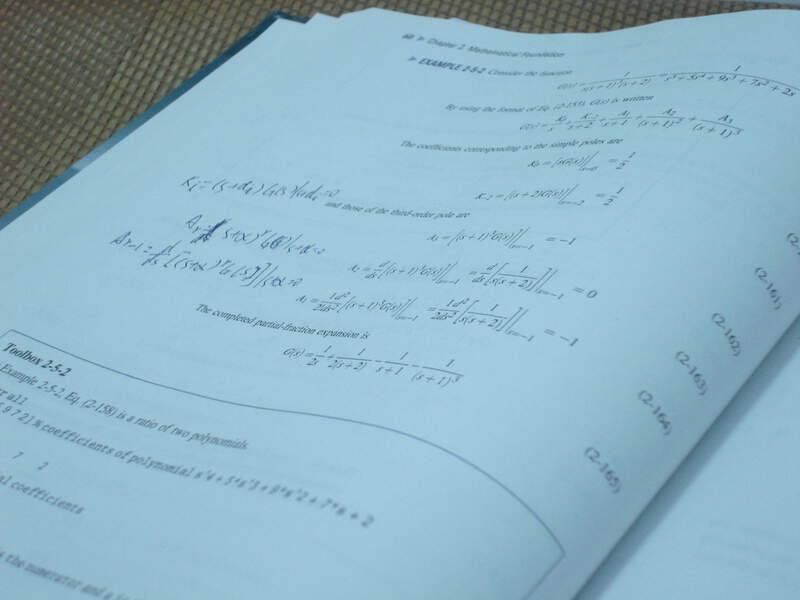 60 ▶ Chapter 2. Mathematical Foundation
▶ EXAMPLE 2-5-2 Consider the function
G(s) = 1/(s(s+1)³(s+2)) = 1/(s⁵+5s⁴+9s³+7s²+2s)
By using the format of Eq. (2-155), G(s) is written
G(s) = K₀/s + K₋₂/(s+2) + A₁/(s+1) + A₂/(s+1)² + A₃/(s+1)³
The coefficients corresponding to the simple poles are
K₀ = [sG(s)]|s=0 = 1/2
K₋₂ = [(s+2)G(s)]|s=−2 = 1/2
and those of the third-order pole are
A₃ = [(s+1)³G(s)]|s=−1 = −1
(2-161)
d/ds[(s+1)³G(s)]|s=−1 = d/ds[1/(s(s+2))]|s=−1 = 0
(2-162)
A₁ = 1/2! d²/ds²[(s+1)³G(s)]|s=−1 = 1/2 d²/ds²[1/(s(s+2))]|s=−1 = −1
(2-163)
The completed partial-fraction expansion is
(2-164)
G(s) = 1/2s + 1/(2(s+2)) − 1/(s+1) − 1/(s+1)³
(2-165)
Toolbox 2-5-2
Example 2-5-2, Eq. (2-158) is a ratio of two polynomials.
9 7 2] % coefficients of polynomial s^4+5*s^3+9*s^2+7*s+2
7 2
coefficients
the numerator and a